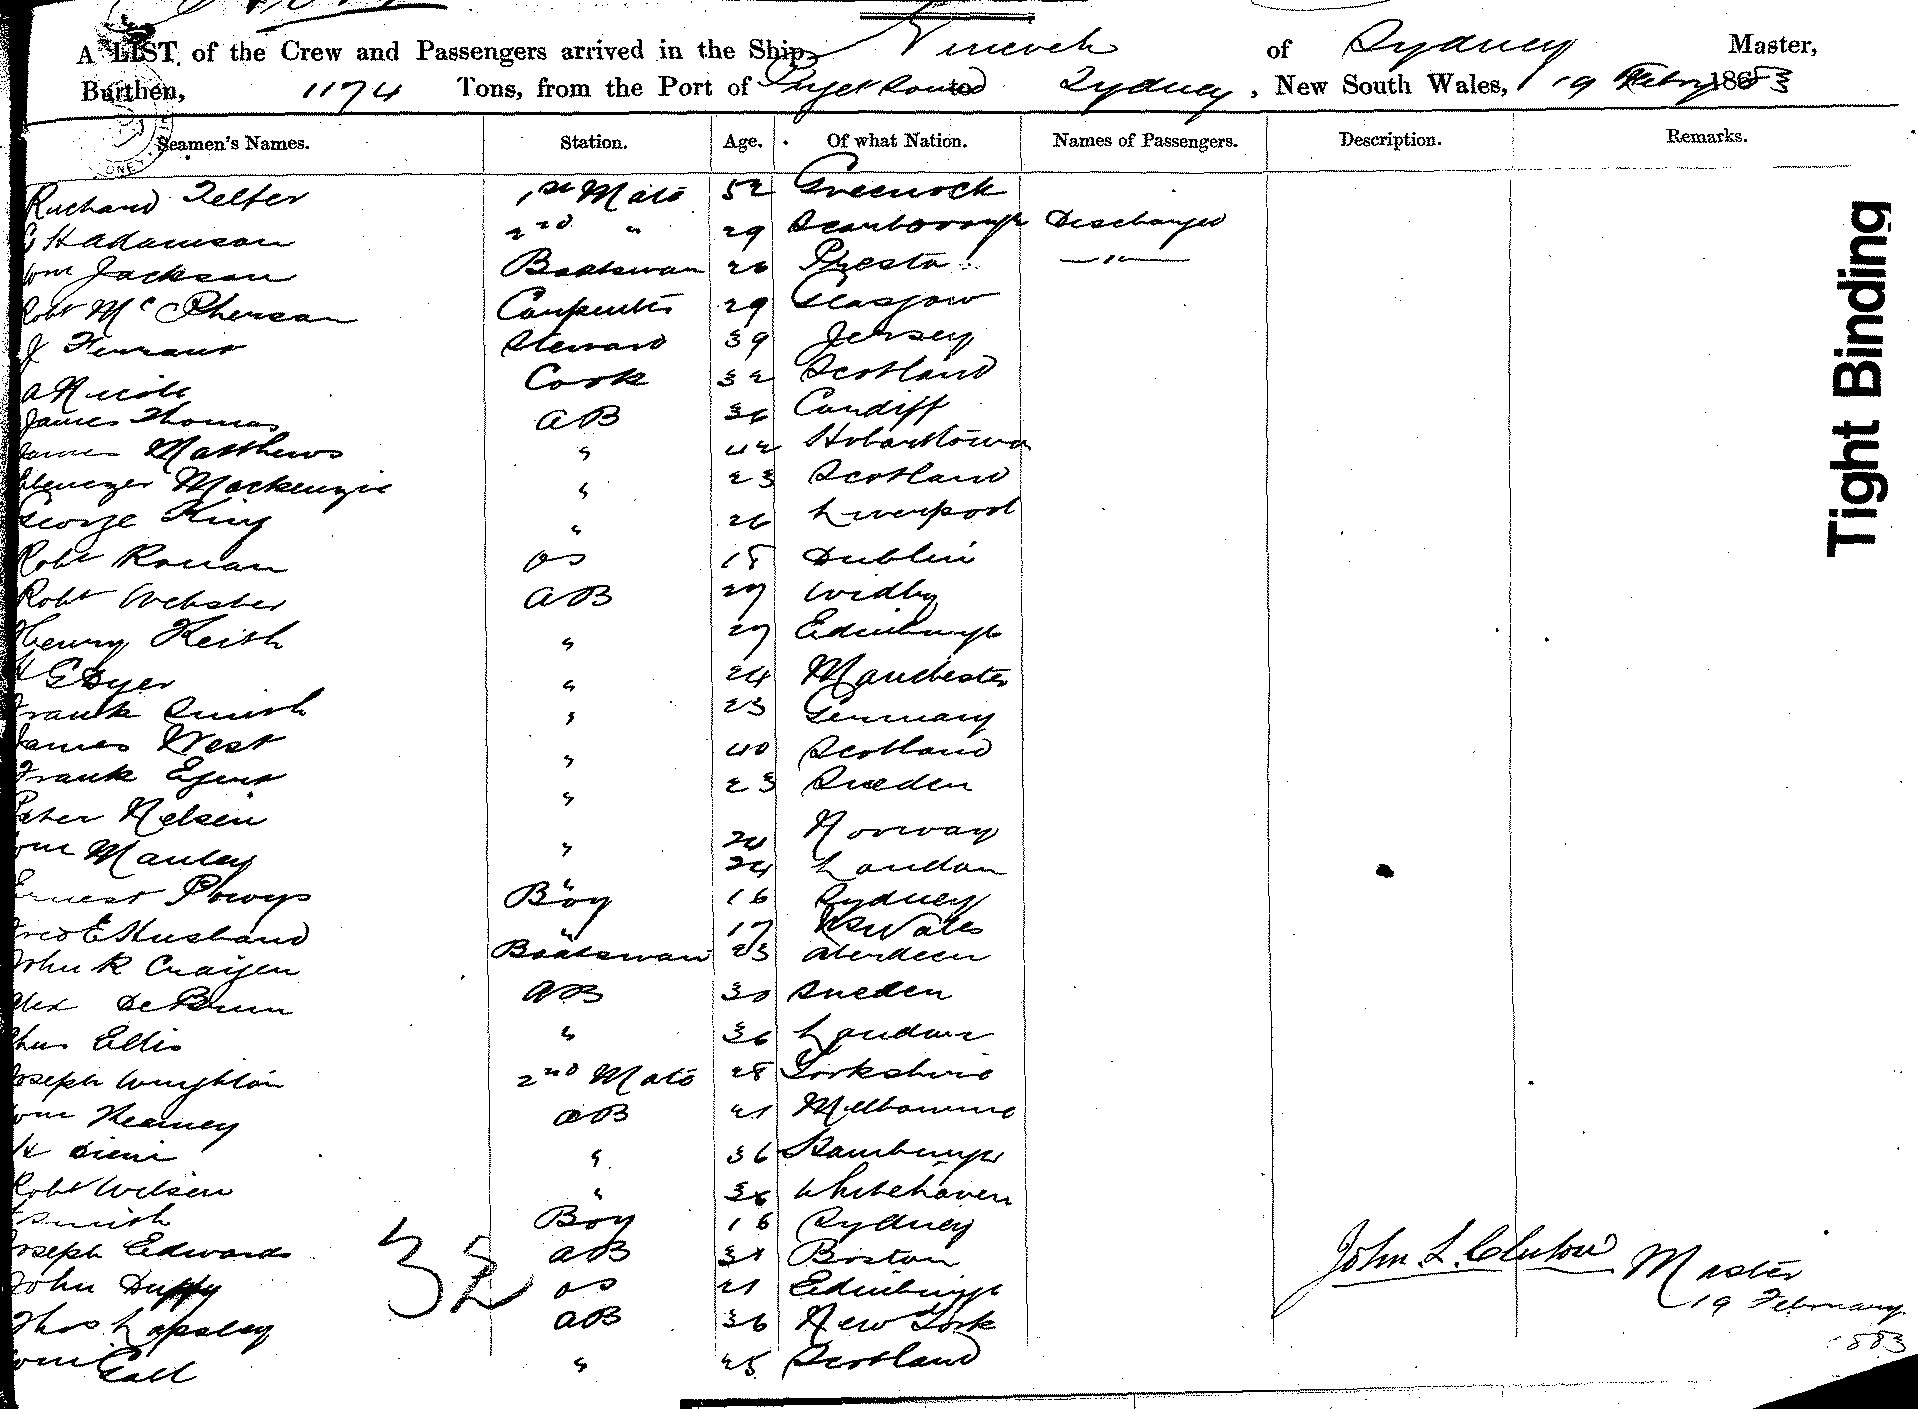 A LIST of the Crew and Passengers arrived in the Ship Nineveh of Sydney Master,
Burthen, 1174 Tons, from the Port of Puget Sound Sydney, New South Wales, 19 Febry 1883
Seamen's Names. Station. Age. Of what Nation. Names of Passengers. Description. Remarks.
Richard Telfer 1st Mate 52 Greenock
G H Adamson 2nd " 29 Scarborough Discharged
Wm Jackson Boatswan 26 —"—
Robt McPherson Carpenter 29 Glasgow
J Steward 39 Jersey
A Nicole Cook 32 Scotland
James Thomas AB 36 Cardiff
James Matthews " 42 Hobarttown
Ebenezer Mackenzie " 23 Scotland
George King " 26 Liverpool
Robt Ronan OS 18 Dublin
Robt Webster AB 27 Widby
Henry Keith " 27 Edinburgh
H G Dyer " 24 Manchester
Frank Smith " 23 Germany
James West " 40 Scotland
Frank " 23 Sweden
Peter Nelsen " 24 Norway
Wm Manley " 24 London
Ernest Powys Boy 16 Sydney
Fred E Husband " 17 NSWales
John R Craigen Boatswan 23 Aberdeen
Alex De Brun AB 30 Sweden
Chas Ellis " 36 London
Joseph Wrighton 2nd Mate 28 Yorkshire
Wm Kearney AB 21 Melbourne
H " 36 Hamburgh
Robt Wilsen " 36 Whitehaven
Smith Boy 16 Sydney
Joseph Edwards AB 31 Boston John L. Clulow Master
John Duffy OS 21 Edinburgh 19 February
Thos Lapsley AB 36 New York 1883
Wm Gall " 25 Scotland
32
Tight Binding